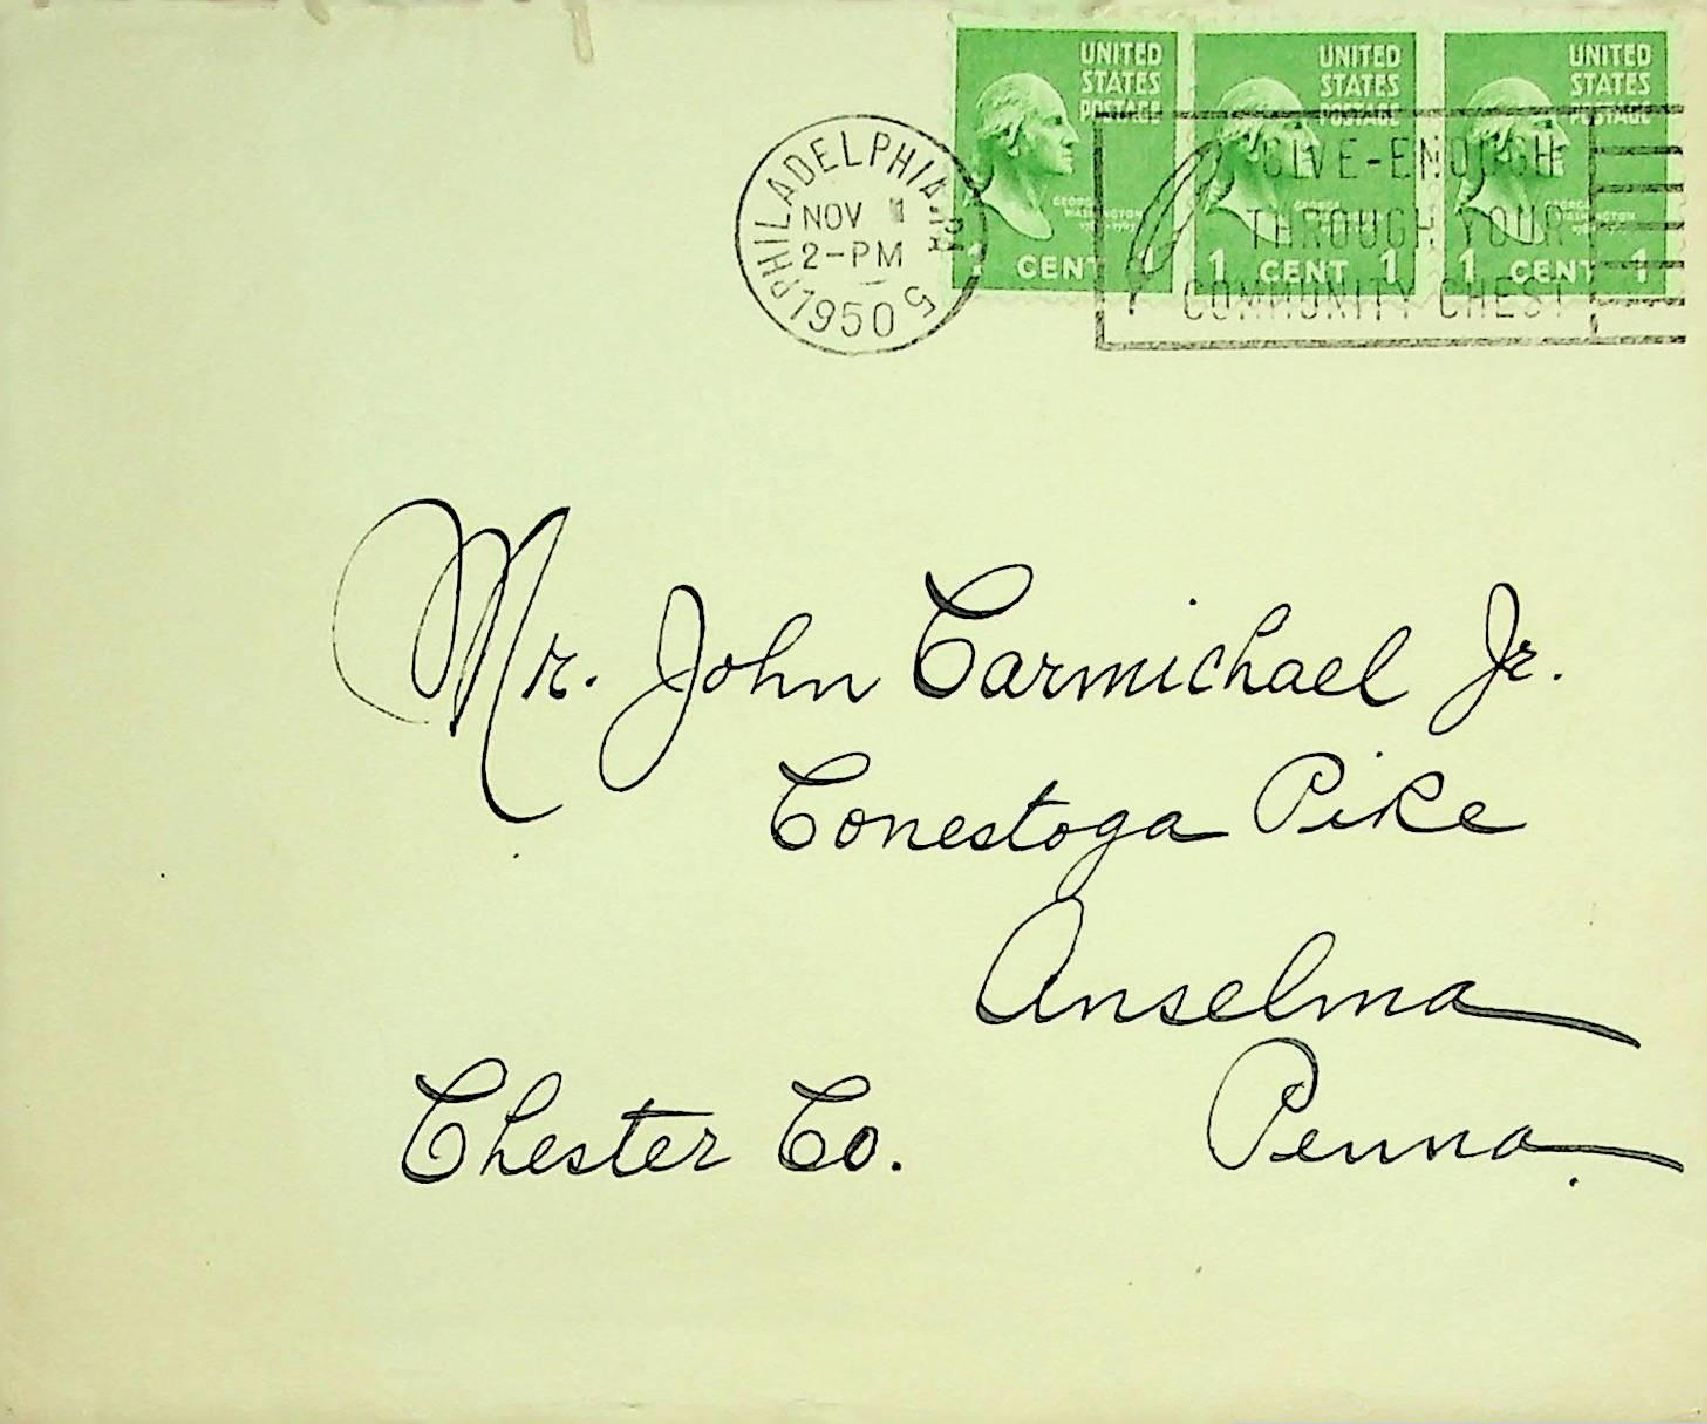 UNITED STATES POSTAGE
GEORGE WASHINGTON
CENT 1
UNITED STATES POSTAGE
1 CENT 1
UNITED STATES POSTAGE
1 CENT 1
PHILADELPHIA, PA.
NOV
2-PM
1950
5
GIVE-ENOUGH
THROUGH YOUR
COMMUNITY CHEST
Mr. John Carmichael Jr.
Conestoga Pike
Anselma
Chester Co. Penna.